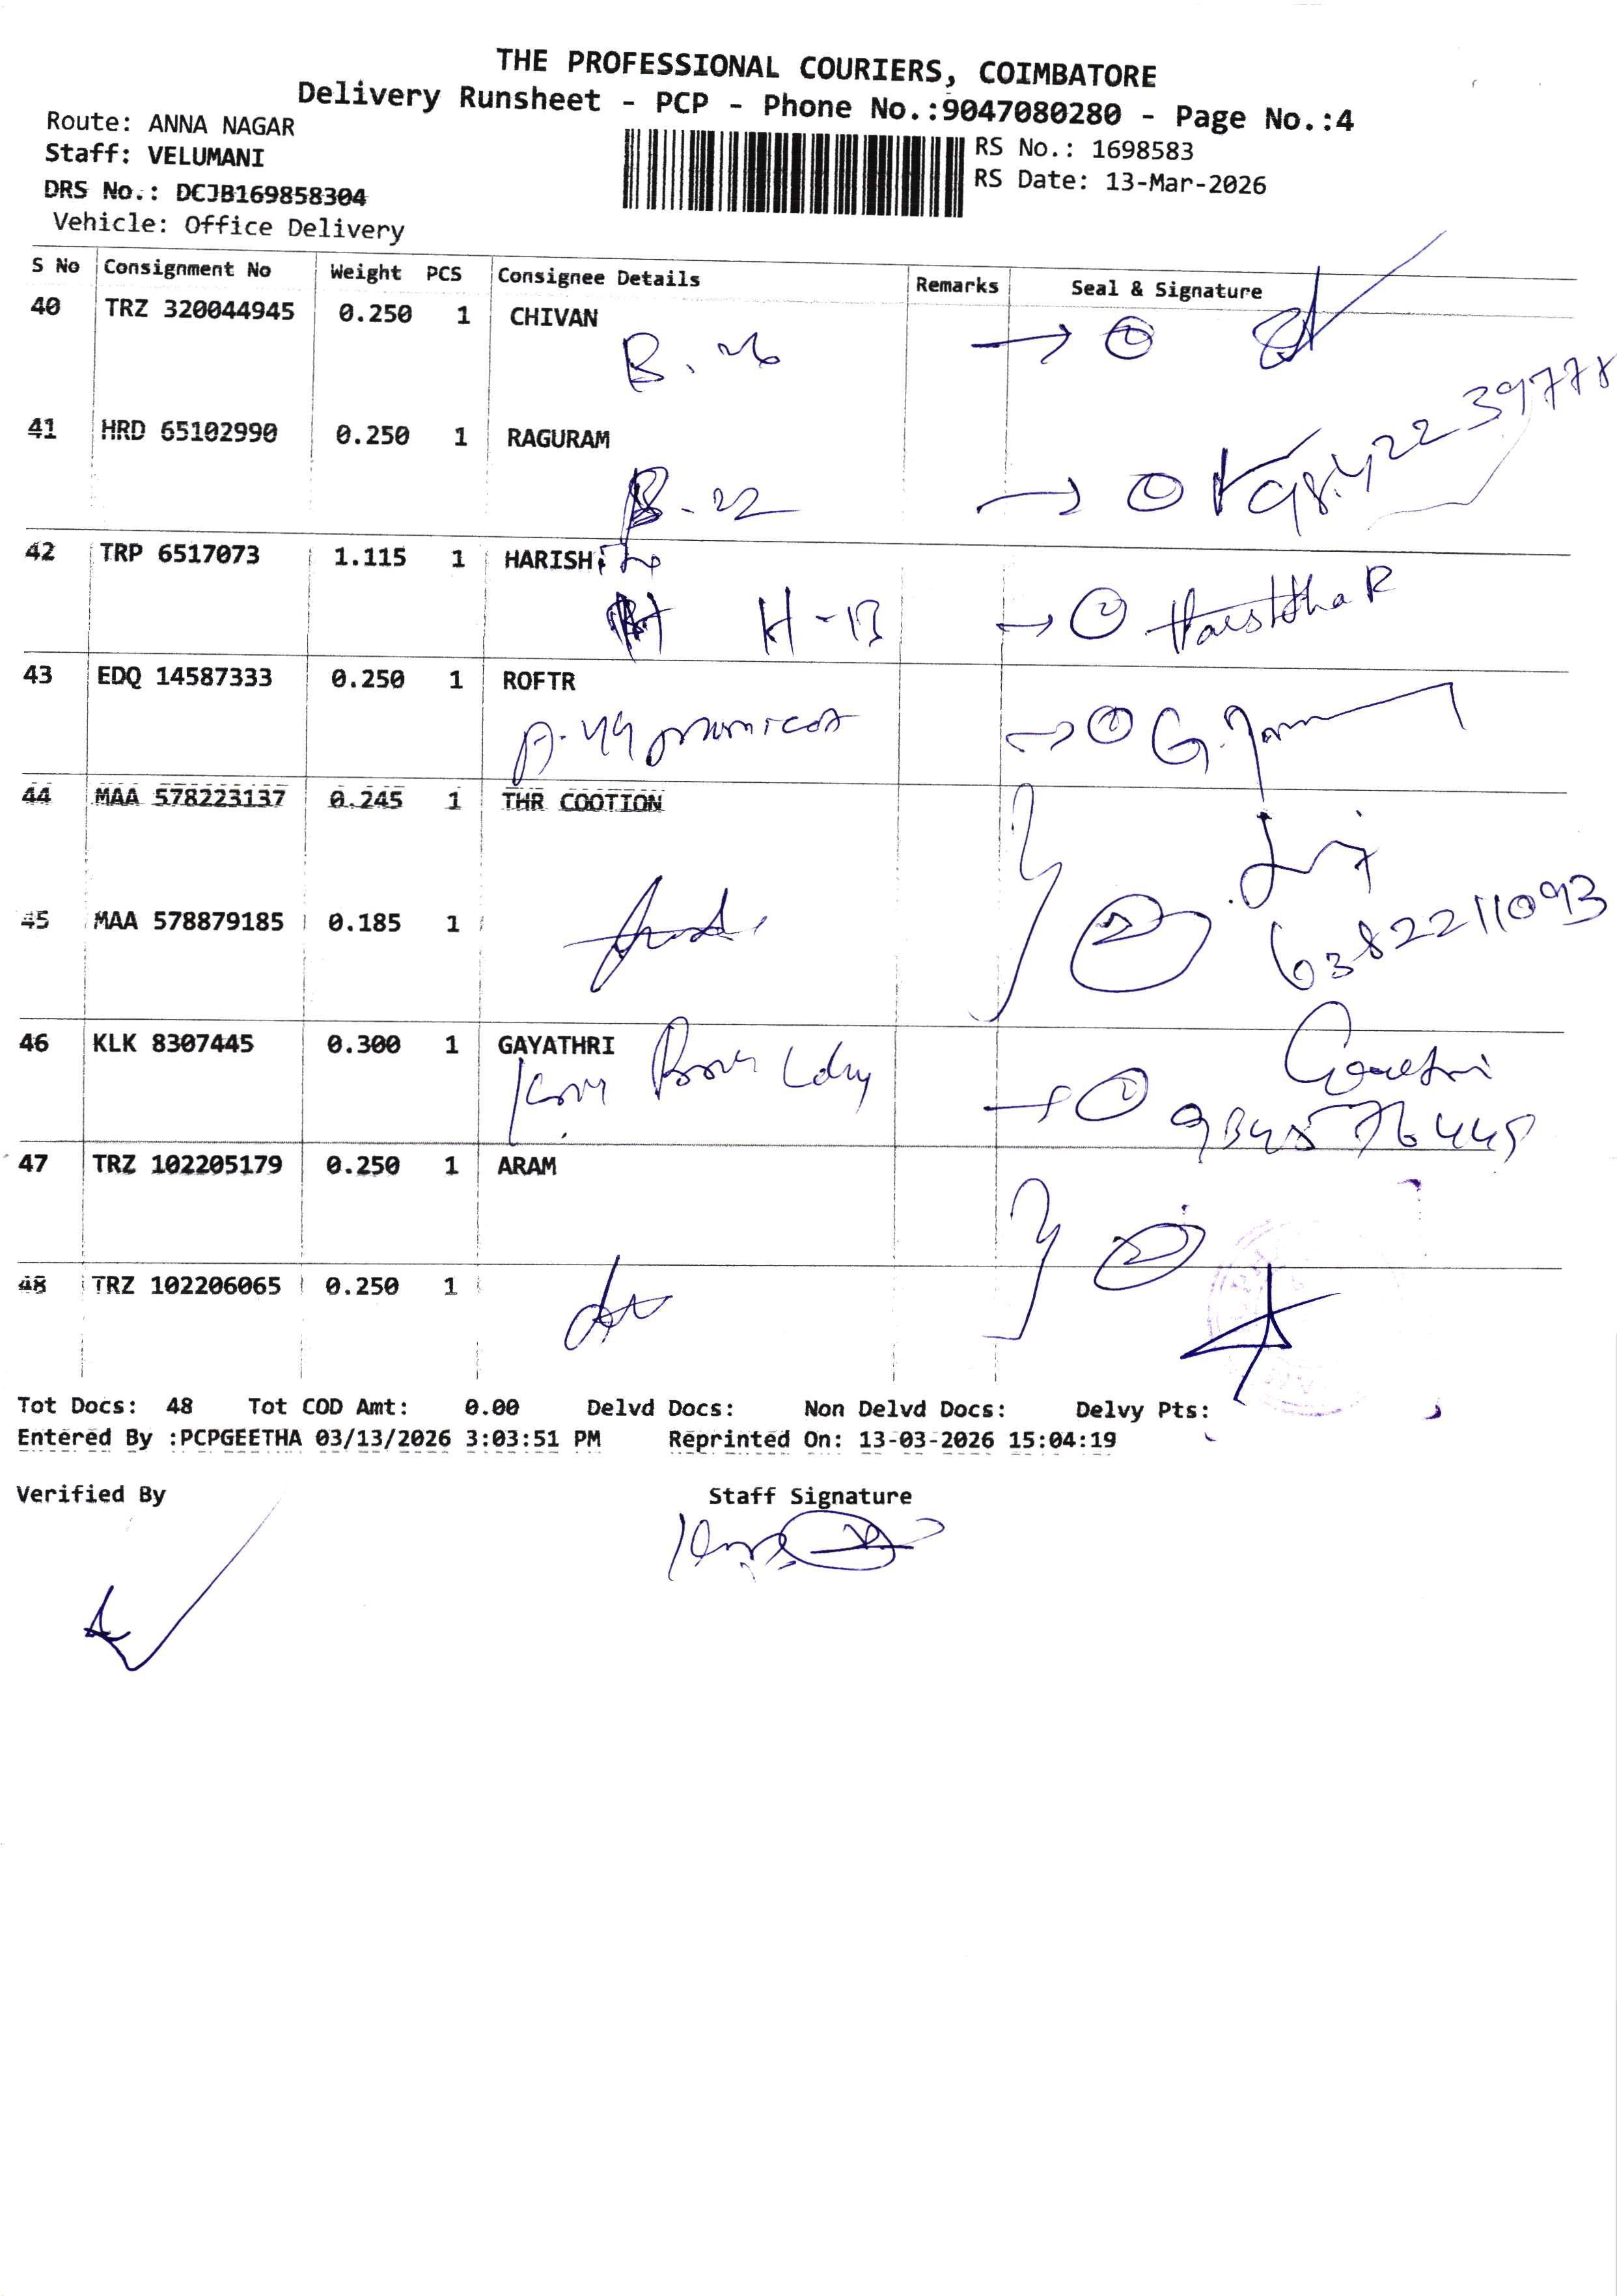 THE PROFESSIONAL COURIERS, COIMBATORE
Delivery Runsheet - PCP - Phone No.:9047080280 - Page No.:4
Route: ANNA NAGAR
Staff: VELUMANI
DRS No.: DCJB169858304
Vehicle: Office Delivery
RS No.: 1698583
RS Date: 13-Mar-2026
S No Consignment No Weight PCS Consignee Details Remarks Seal & Signature
40 TRZ 320044945 0.250 1 CHIVAN
41 HRD 65102990 0.250 1 RAGURAM
B-22
42 TRP 6517073 1.115 1 HARISH
H-13
43 EDQ 14587333 0.250 1 ROFTR
44 MAA 578223137 0.245 1 THR COOTION
45 MAA 578879185 0.185 1
6382211093
46 KLK 8307445 0.300 1 GAYATHRI
47 TRZ 102205179 0.250 1 ARAM
48 TRZ 102206065 0.250 1
Tot Docs: 48 Tot COD Amt: 0.00 Delvd Docs: Non Delvd Docs: Delvy Pts:
Entered By :PCPGEETHA 03/13/2026 3:03:51 PM Reprinted On: 13-03-2026 15:04:19
Verified By Staff Signature